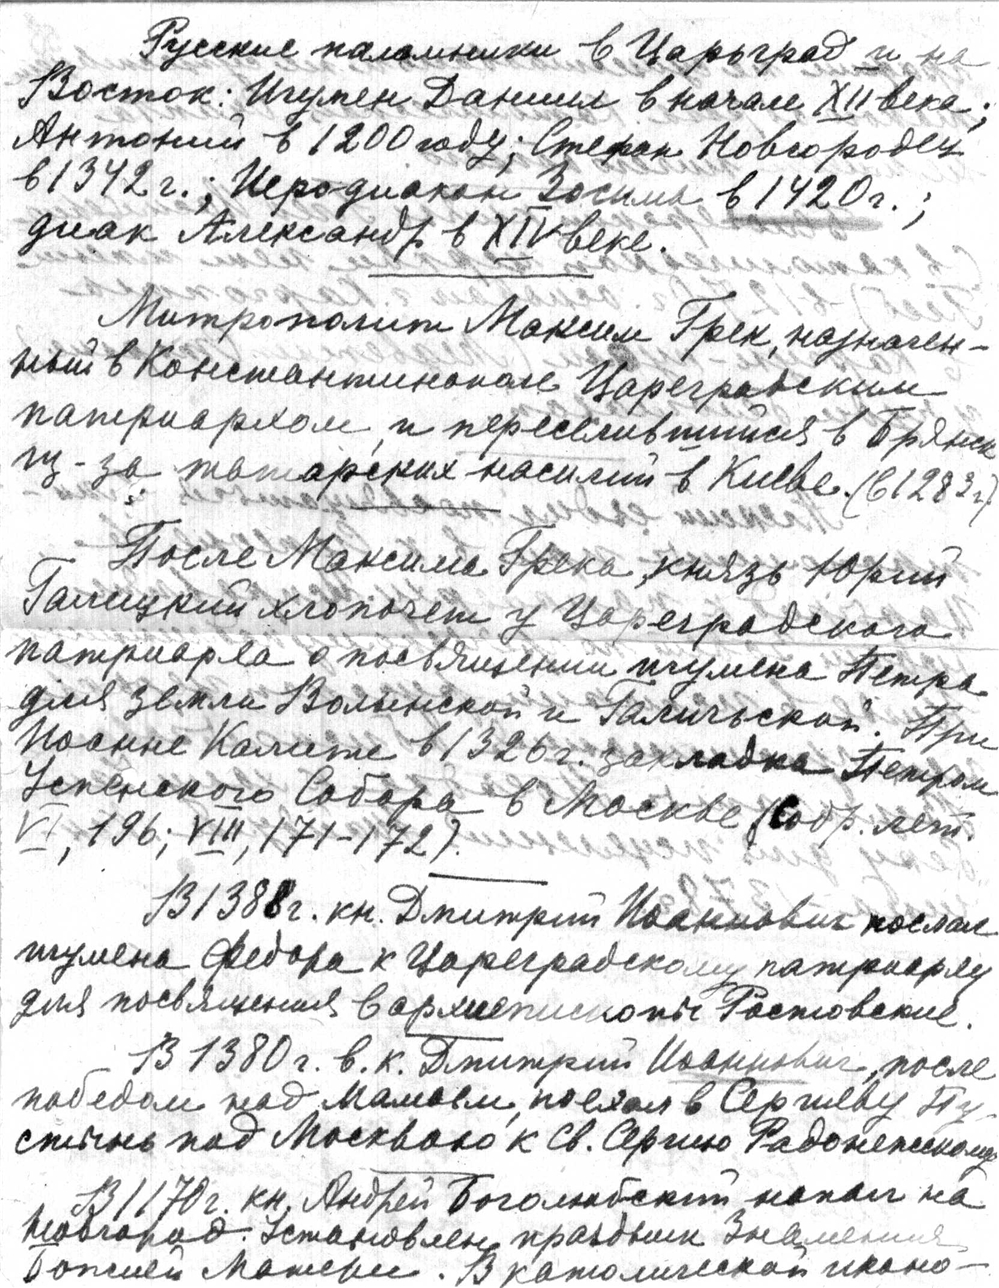 Русские паломники в Царьград и на
Восток: Игумен Даниил в начале XII века;
Антоний в 1200 году; Стефан Новгородец
в 1342 г.; Иеродиакон Зосима в 1420 г.;
диак Александр в XIV веке.
Митрополит Максим Грек, назначен-
ный в Константинополе Цареградским
патриархом, и переселившийся в Брянск
из-за татарских насилий в Киеве. (в 1283 г)
После Максима Грека, князь Юрий
Галицкий хлопочет у Цареградского
патриарха о посвящении игумена Петра
для земли Волынской и Галичьской. При
Иоанне Калите в 1326 г. закладка Петром
Успенского Собора в Москве (Собр. лет.
VI, 196; VIII, 171-172).
В 1388 г. кн. Дмитрий Иоаннович послал
игумена Федора к Цареградскому патриарху
для посвящения в архиепископы Ростовские.
В 1380 г. в. к. Дмитрий Иоаннович, после
победы над Мамаем, поехал в Сергиеву Пу-
стынь под Москвою к Св. Сергию Радонежскому
В 1170 г. кн. Андрей Боголюбский напал на
Новгород. Установлен праздник Знамения
Божией Матери. В католической иконо-